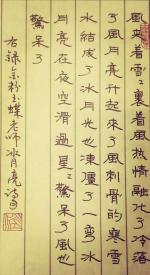 风来着雪〻裹着风热情融化了冷落
了风月亮升起来了风刺骨的寒雪
水结成了冰月光也凍僵了一弯冰
月亮在夜空滑過星〻驚呆了風也
驚呆了
右録金粉玉蝶老师冰月亮詩